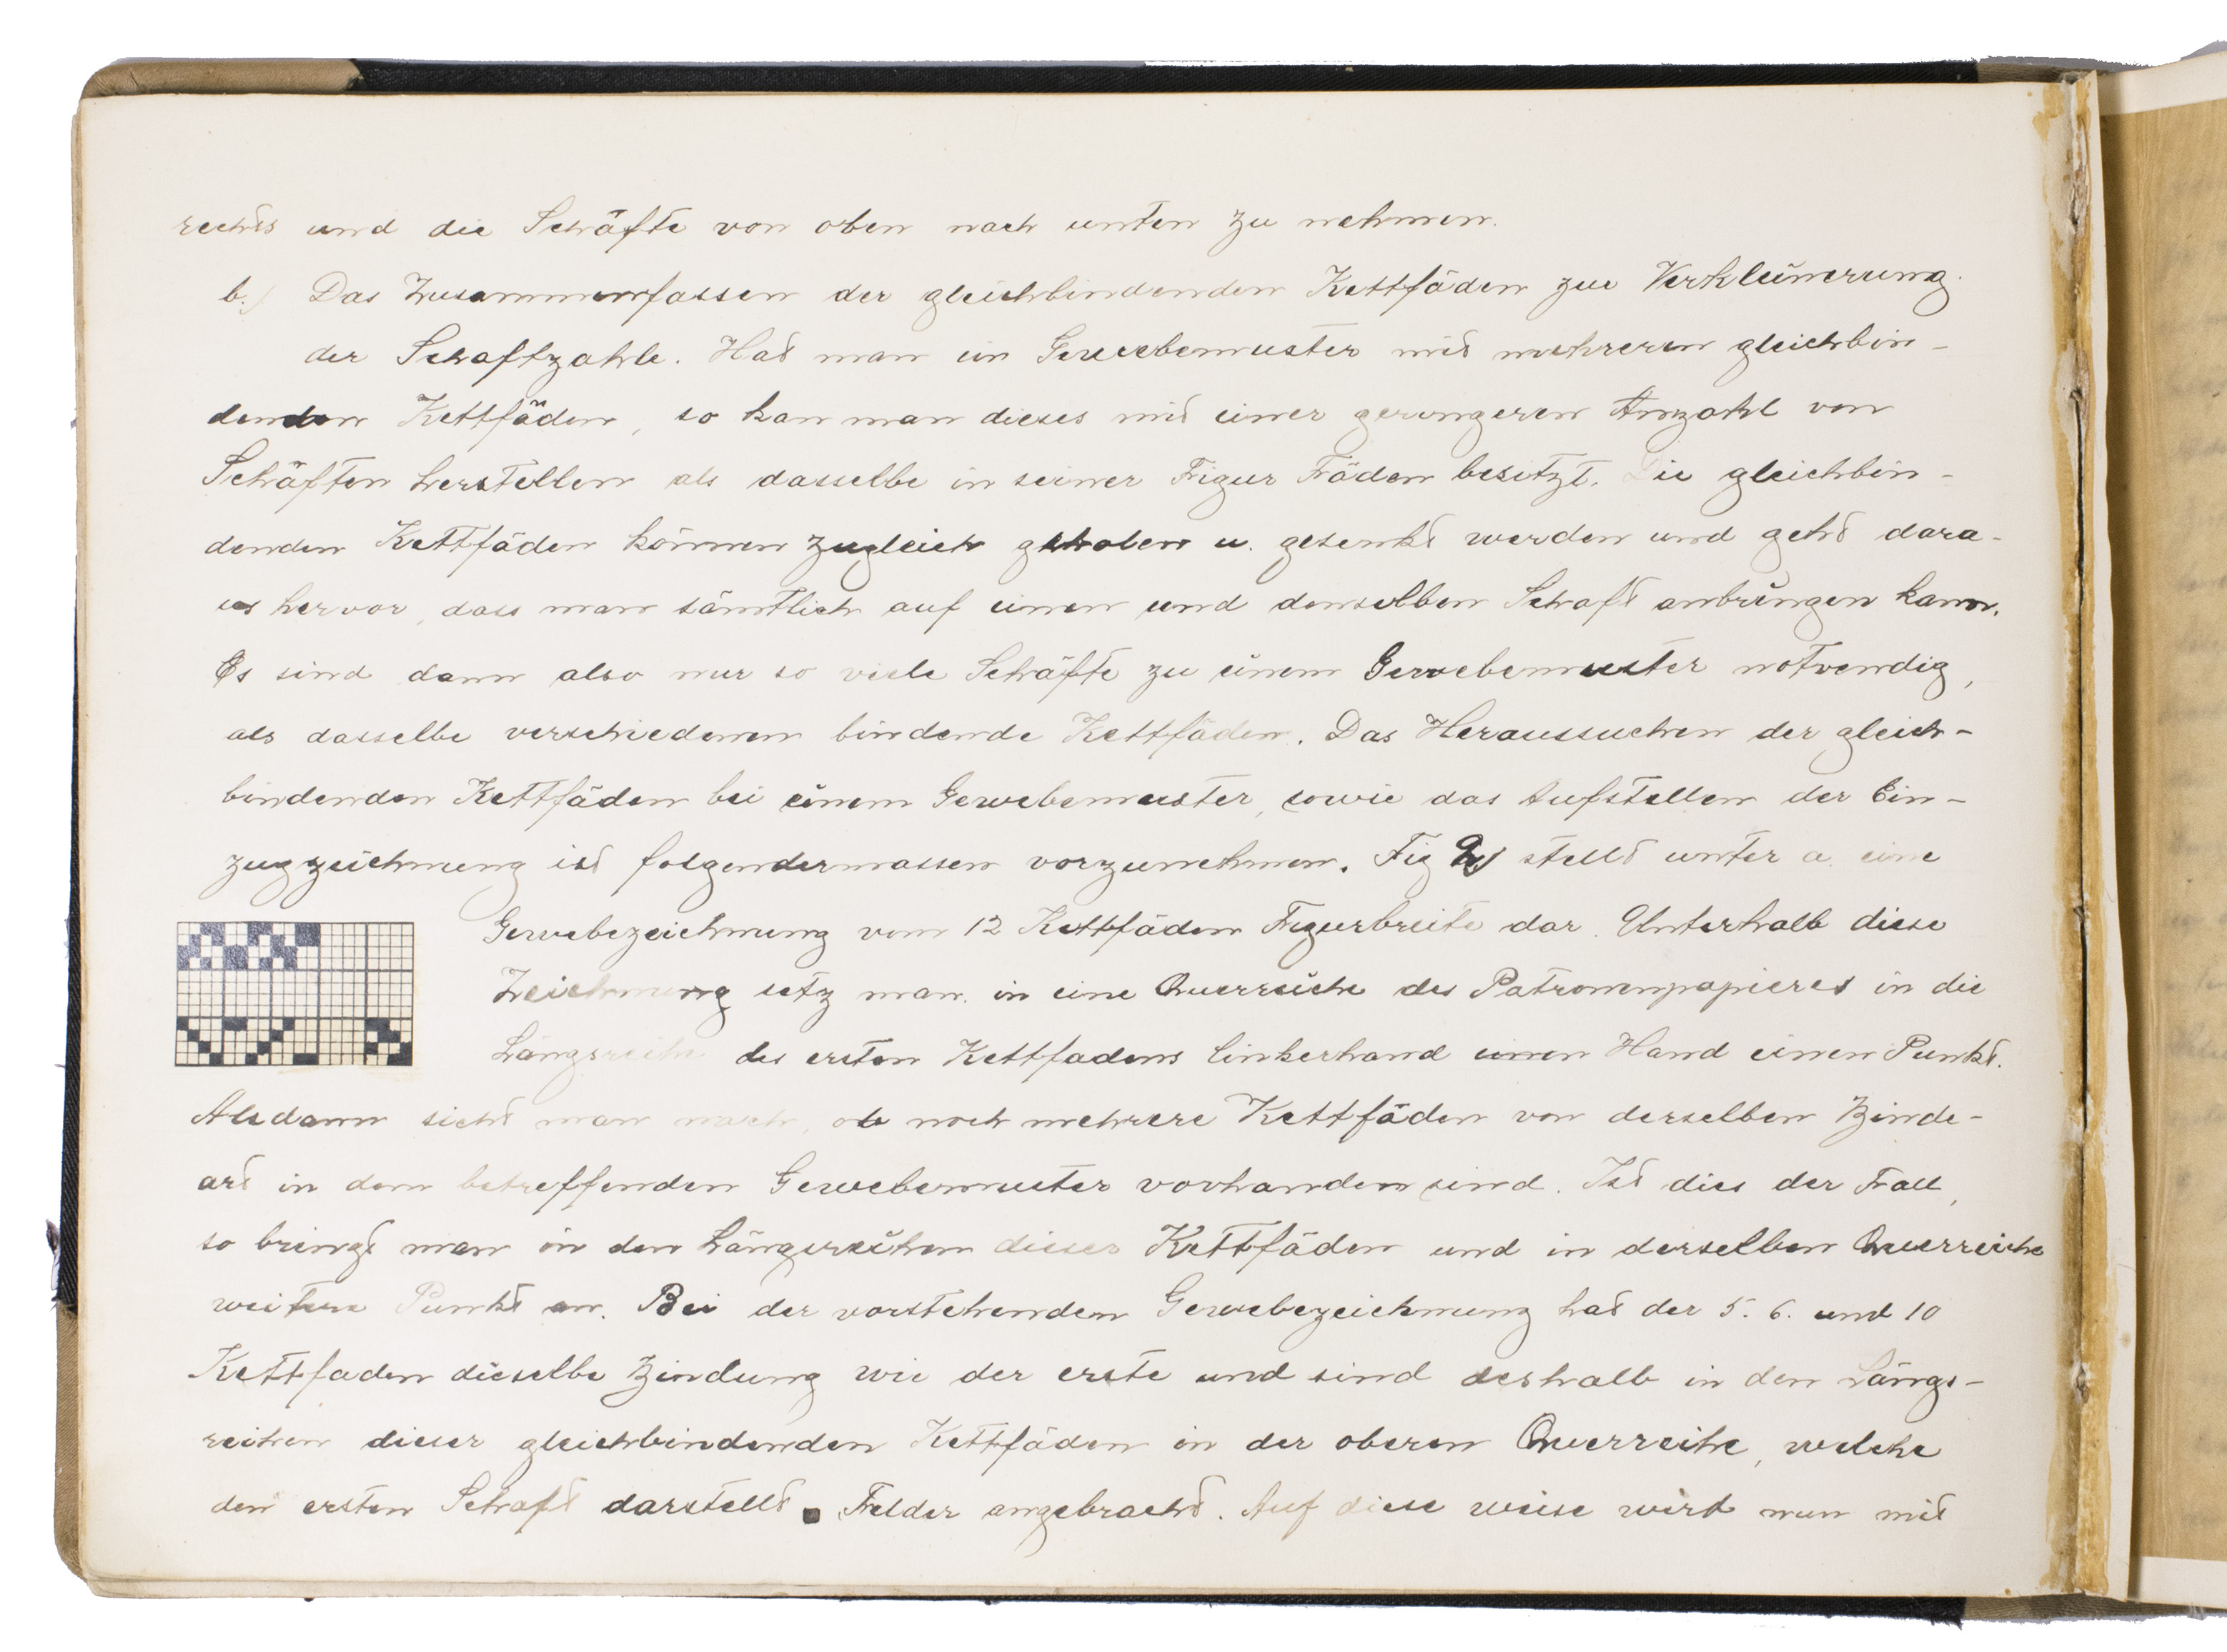 rechts und die Schäfte von oben nach unten zu nehmen.
b.) Das Zusammenfassen der gleichbindenden Kettfäden zur Verkleinerung
der Schaftzahle. Hat man ein Gewebemuster mit mehreren gleichbin-
denden Kettfäden, so kan man dieses mit einer geringeren Anzahl von
Schäften herstellen als dasselbe in seiner Figur Fäden besitzt. Die gleichbin-
denden Kettfäden können zugleich gehoben u. gesenkt werden und geht dara-
us hervor, dass man sämtlich auf einen und denselben Schaft anbringen kann.
Es sind dann also nur so viele Schäfte zu einem Gewebemuster notwendig,
als dasselbe verschiedenen bindende Kettfäden. Das Heraussuchen der gleich-
bindenden Kettfäden bei einem Gewebemuster, sowie das Aufstellen der Ein-
zugzeichnung ist folgendermassen vorzunehmen. Fig 2) stellt unter a. eine
Gewebezeichnung von 12 Kettfäden Figurbreite dar. Unterhalb diese
Zeichnung setz man in eine Querreiche des Patronenpapieres in die
Längsreihe des ersten Kettfadens linkerhand einen Hand einen Punkt.
Alsdann sieht man nach, ob noch mehrere Kettfäden von derselben Binde-
art in dem betreffenden Gewebemuster vorhanden sind. Ist dies der Fall,
so bringt man in den Längsreihen dieser Kettfäden und in derselben Querreiche
weitere Punkt an. Bei der vorstehenden Gewebezeichnung hat der 5. 6. und 10
Kettfaden dieselbe Bindung wie der erste und sind deshalb in den Längs-
reihen dieser gleichbindenden Kettfäden in der oberen Querreihe, welche
den ersten Schaft darstellt Felder angebracht. Auf diese weise wird nun mit